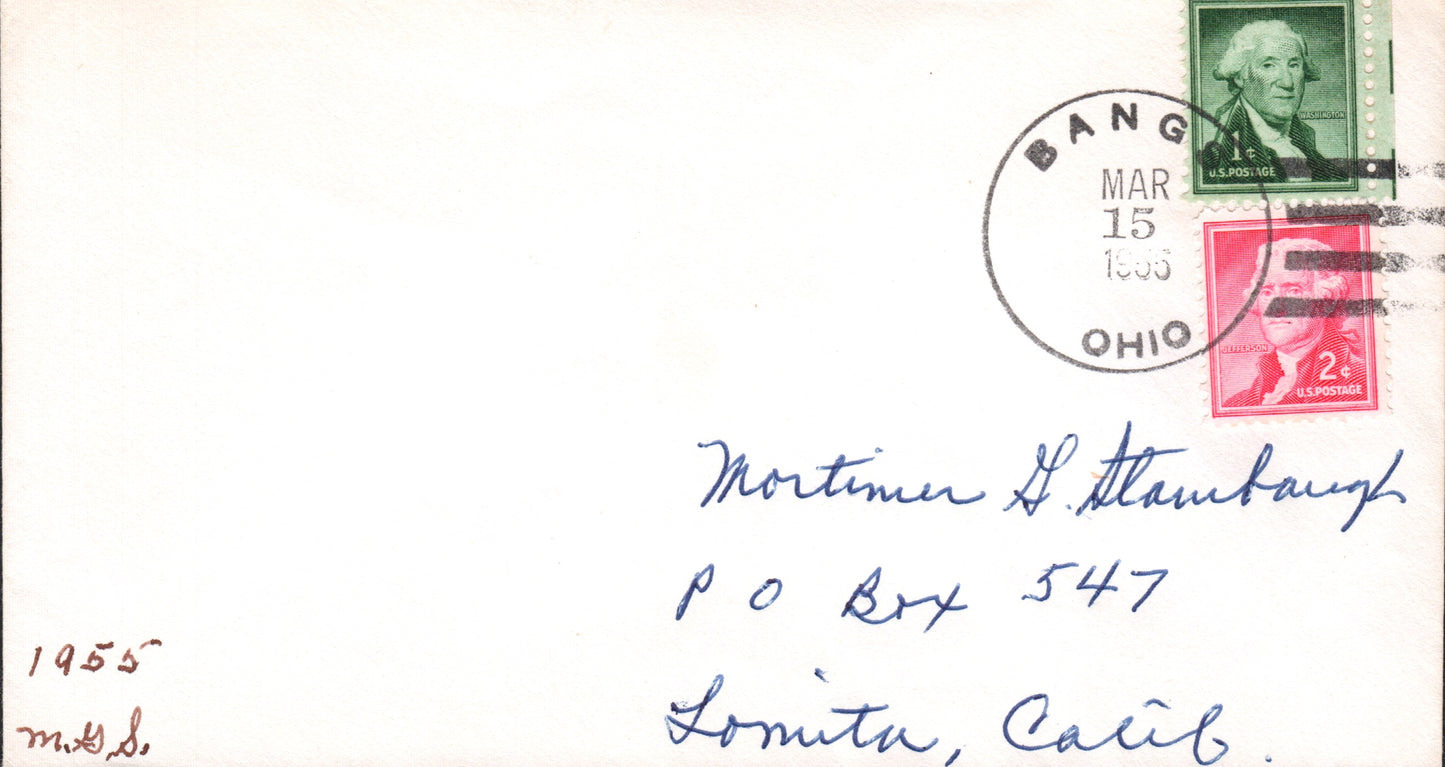 WASHINGTON
1¢
U.S.POSTAGE
BANG
MAR
15
OHIO
JEFFERSON
2¢
U.S.POSTAGE
Mortimer G. Stambaugh
P O Box 547
Lomita, Calif.
1955
M.G.S.